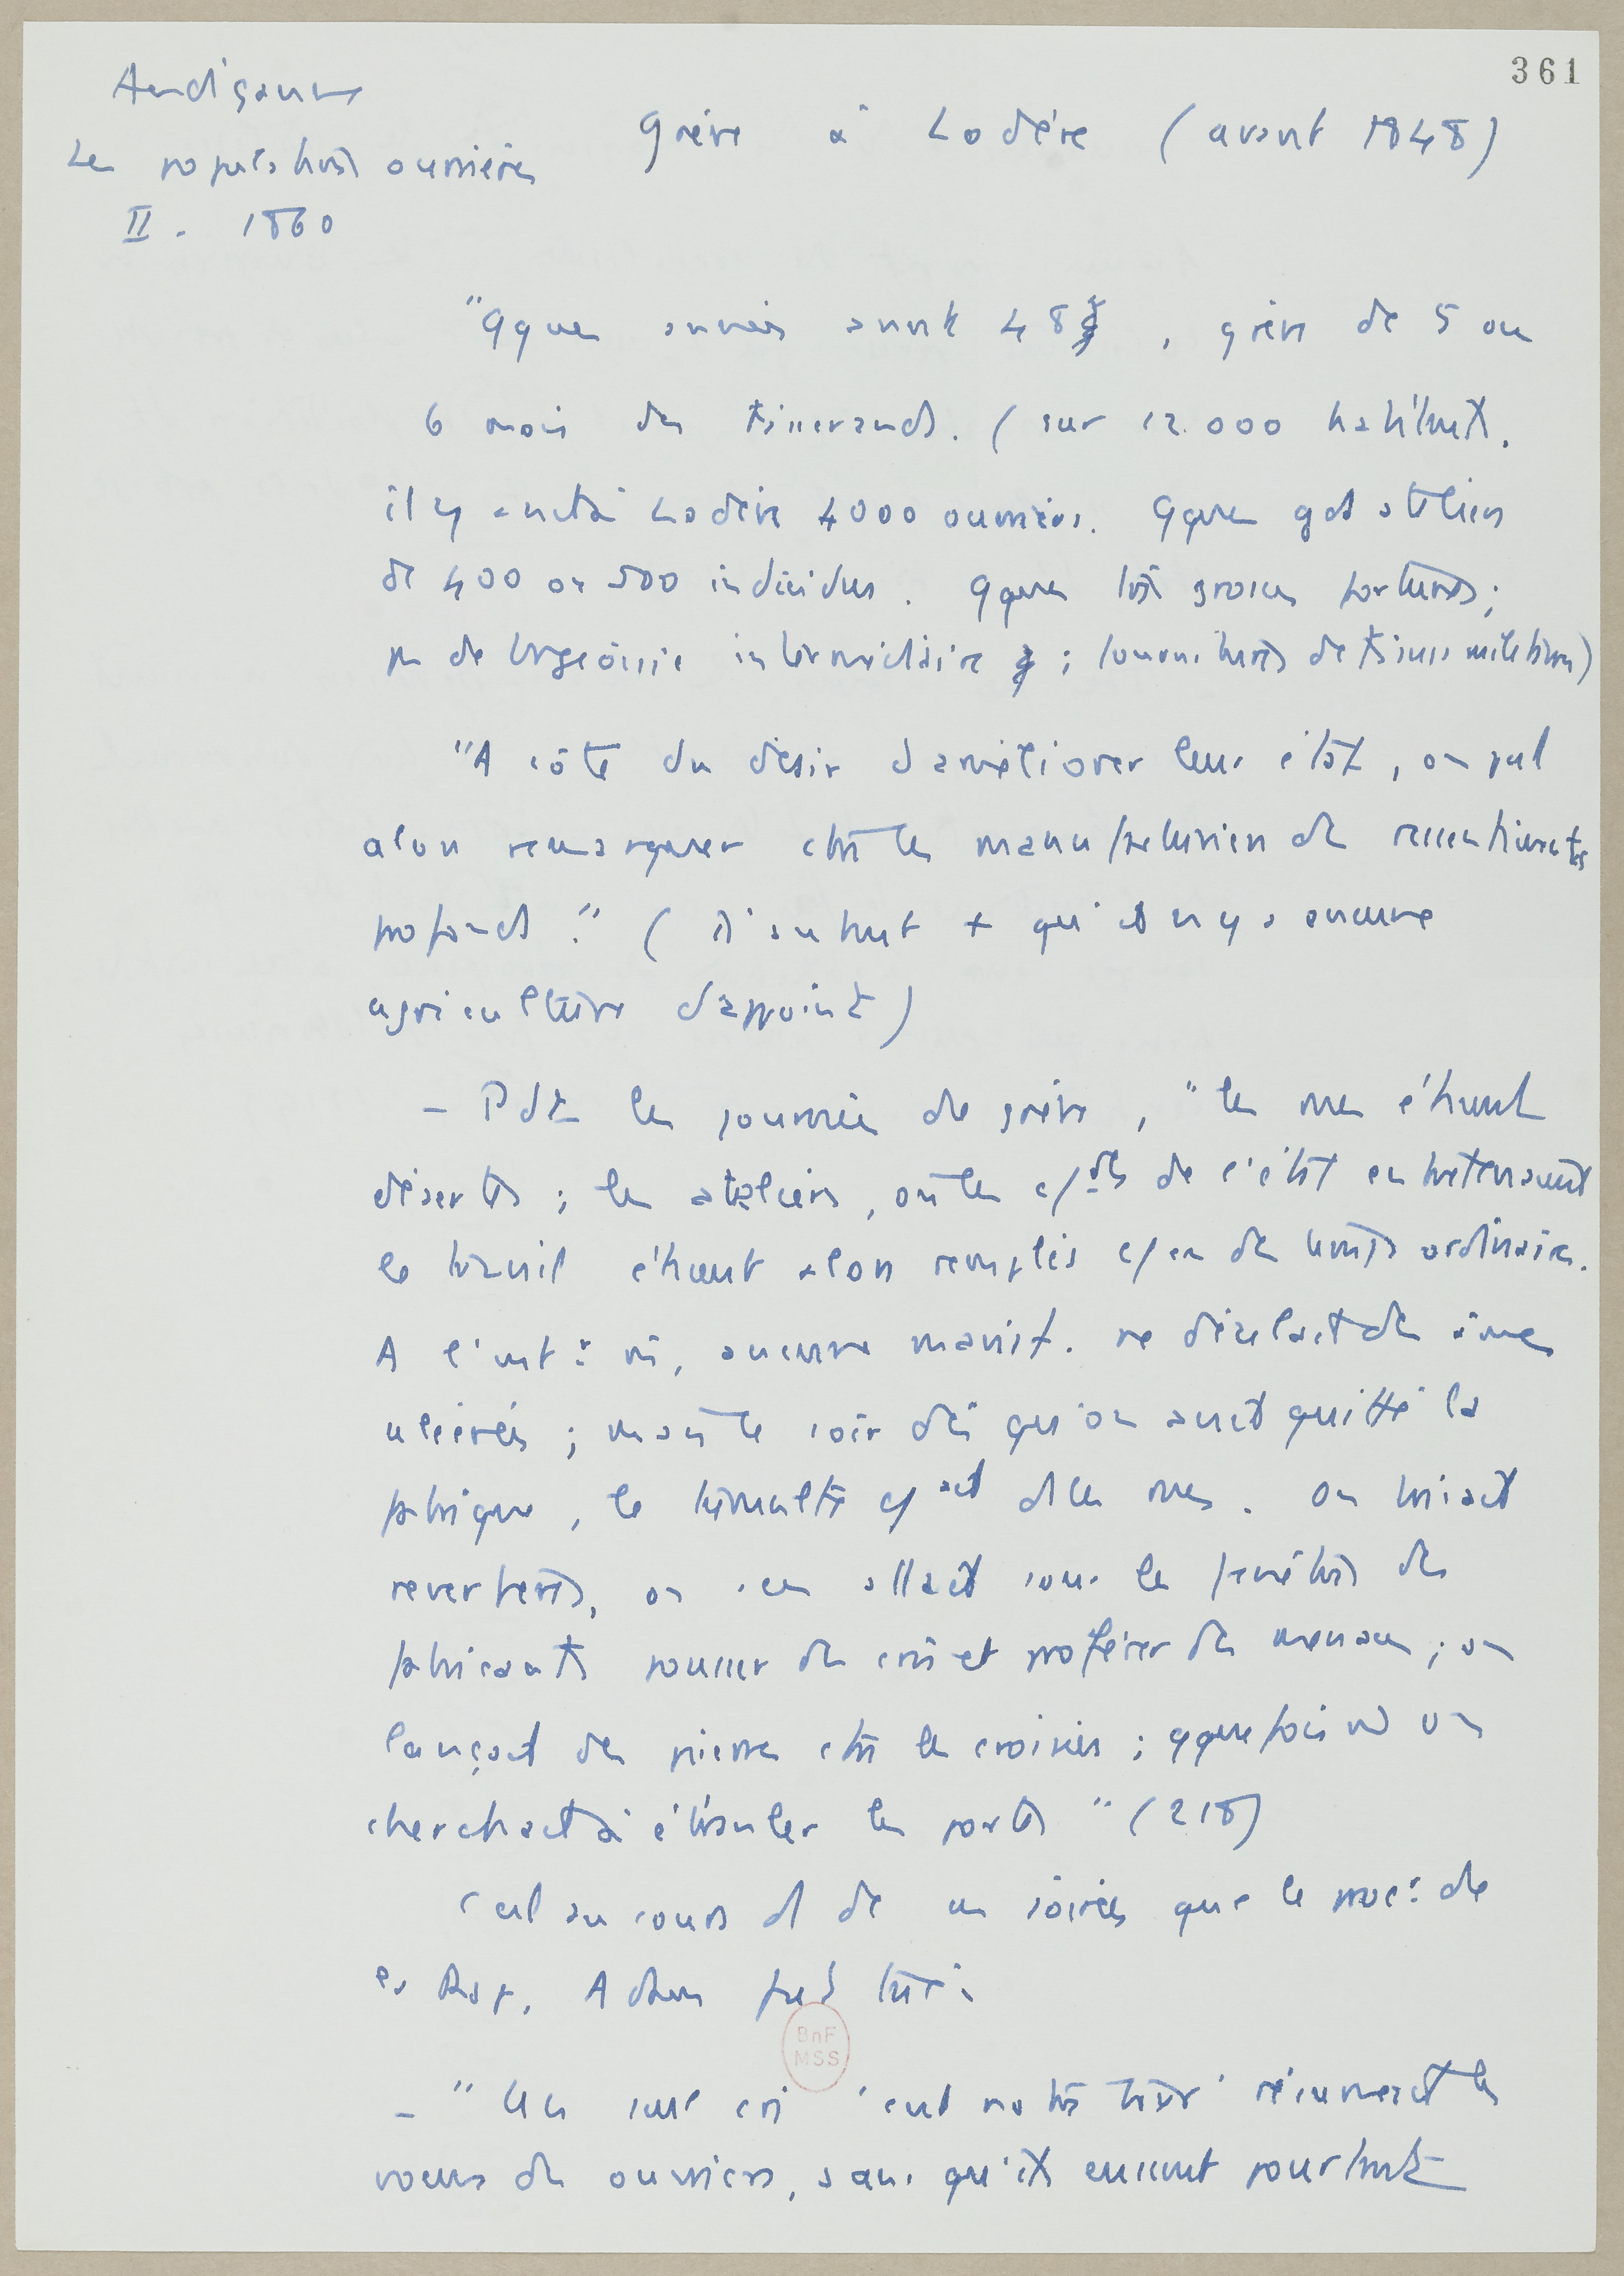 361
Audiganne
Les populations ouvrières
II. 1860
Grève à Lodève (avant 1848)
"Qques années avant 48, grève de 5 ou
6 mois des tisserands. (sur 12.000 habitants,
il y avait à Lodève 4000 ouvriers. Qques gds ateliers
de 400 ou 500 individus. Qques très grosses fortunes;
pas de bourgeoisie intermédiaire ; fournitures de tissus militaires)
"A côté du désir d'améliorer leur état, on put
alors remarquer ctre les manufacturiers des ressentiments
profonds." (d'autant + qu'il n'y a aucune
agriculture d'appoint)
- Pdt les journées de grève, "les rues étaient
désertes ; les ateliers, où les cdes de l'état entretenaient
le travail étaient alors remplis c/ en des temps ordinaires.
A l'int. m, aucune manif. ne décelait des âmes
ulcérées ; mais le soir dès qu'on avait quitté la
fabrique, le tumulte cçait ds les rues. On brisait
reverbères, on s'en allait sous les fenêtres des
fabricants pousser des cris et proférer des menaces ; on
lançait des pierres ctre les croisées ; qquefois m on
cherchait à ébranler les portes" (218)
C'est au cours d'1 de ces soirées que le proc. de
la Rép. Adam fut tué.
- "Un seul cri 'c'est notre tour' résumait les
voeux des ouvriers, sans qu'ils eussent pourtant
BnF
MSS